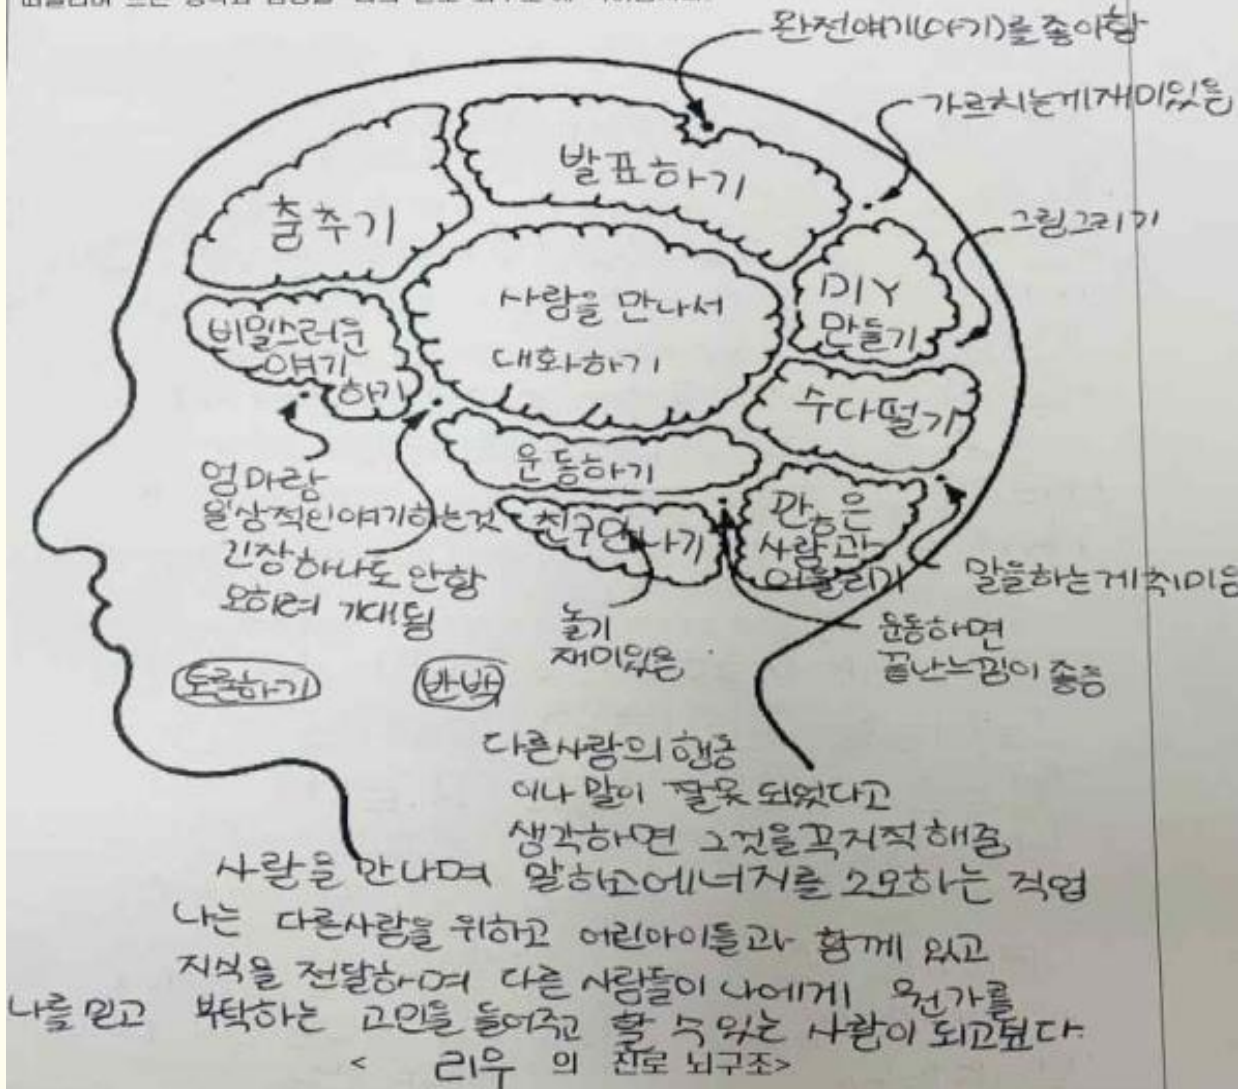 완전얘기(아기)를 좋아함
가르치는게 재미있음
발표하기
춤추기
그림그리기
DIY
만들기
사람을 만나서
대화하기
비밀스러운
얘기
하기
수다떨기
운동하기
친구만나기
많은
사람과
어울리기
엄마랑
일상적인얘기하는것
긴장하나도 안함
오히려 기대됨
놀기
재미있음
말을하는게취미임
운동하면
끝난느낌이 좋음
토론하기
반박
다른사람의 행동
이나 말이 잘못 되었다고
생각하면 그것을꼭지적해줌
사람을 만나며 말하고에너지를 소모하는 직업
나는 다른사람을 위하고 어린아이들과 함께 있고
지식을 전달하며 다른 사람들이 나에게 뭔가를
나를 믿고 부탁하는 고민을 들어주고 할 수 있는 사람이 되고싶다.
< 리우 의 진로 뇌구조>